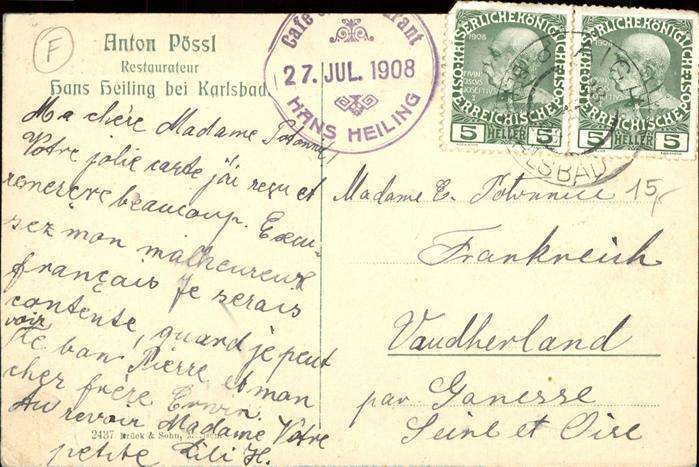 F
Anton Pössl
Restaurateur
Hans Heiling bei Karlsbad.
Café Restaurant
27. JUL. 1908
HANS HEILING
KAISERLICHE KÖNIGLICHE
ÖSTERREICHISCHE
1908
5 HELLER 5
KAISERLICHE KÖNIGLICHE
ÖSTERREICHISCHE
1908
5 HELLER 5
Ma chère Madame
Votre jolie carte j'ai reçu et
remercie beaucoup. Excu-
sez mon malheureux
français Je serais
contente, quand je peut
voir
le bon Pierre, et mon
cher frère Erwin.
Au revoir Madame Votre
petite Lili H.
2437 Brück & Sohn,
Madame E. 15
Frankreich
Vaudherland
par Gonesse
Seine et Oise